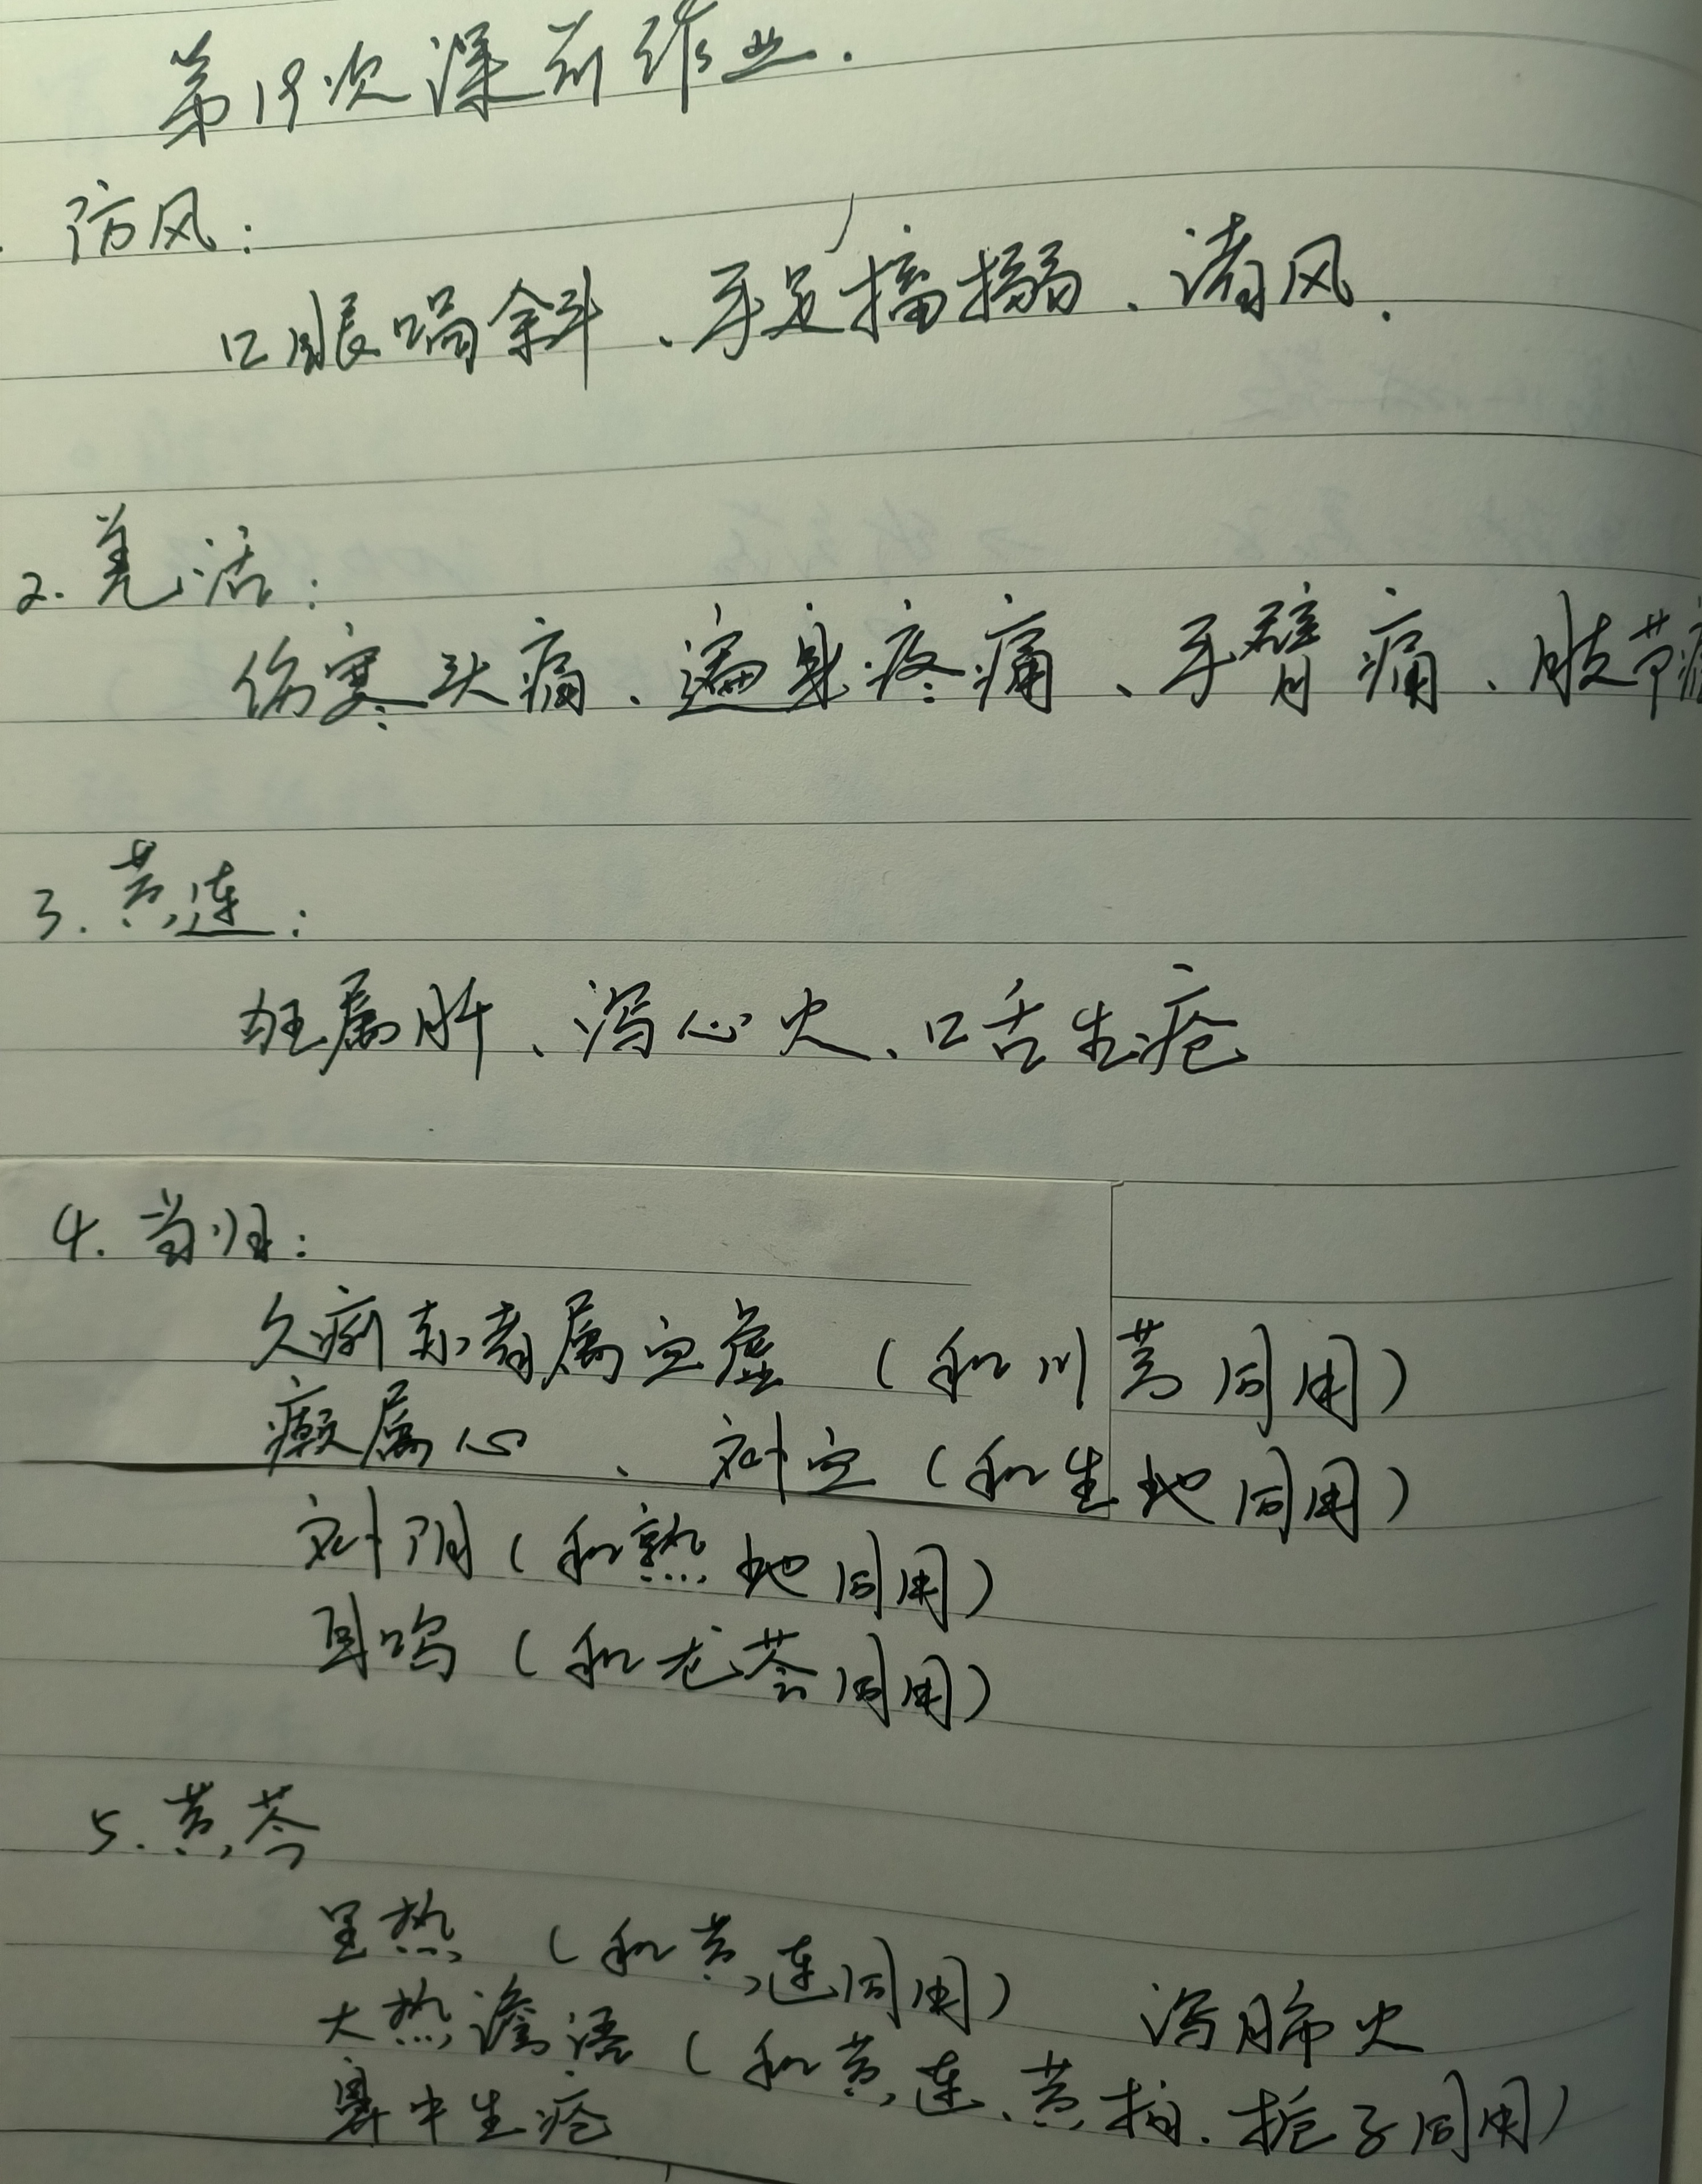 第19次课前作业.
防风:
口眼喎斜、手足搐搦、诸风.
2. 羌活:
伤寒头痛、遍身疼痛、手臂痛、肢节痛
3. 黄连:
狂属肝、泻心火、口舌生疮
4. 当归:
久痢赤者属血虚 (和川芎同用)
癫属心、 补血 (和生地同用)
补阴 (和熟地同用)
耳鸣 (和龙荟同用)
5. 黄芩
里热 (和黄连同用) 泻肺火
大热谵语 (和黄连、黄柏、栀子同用)
鼻中生疮